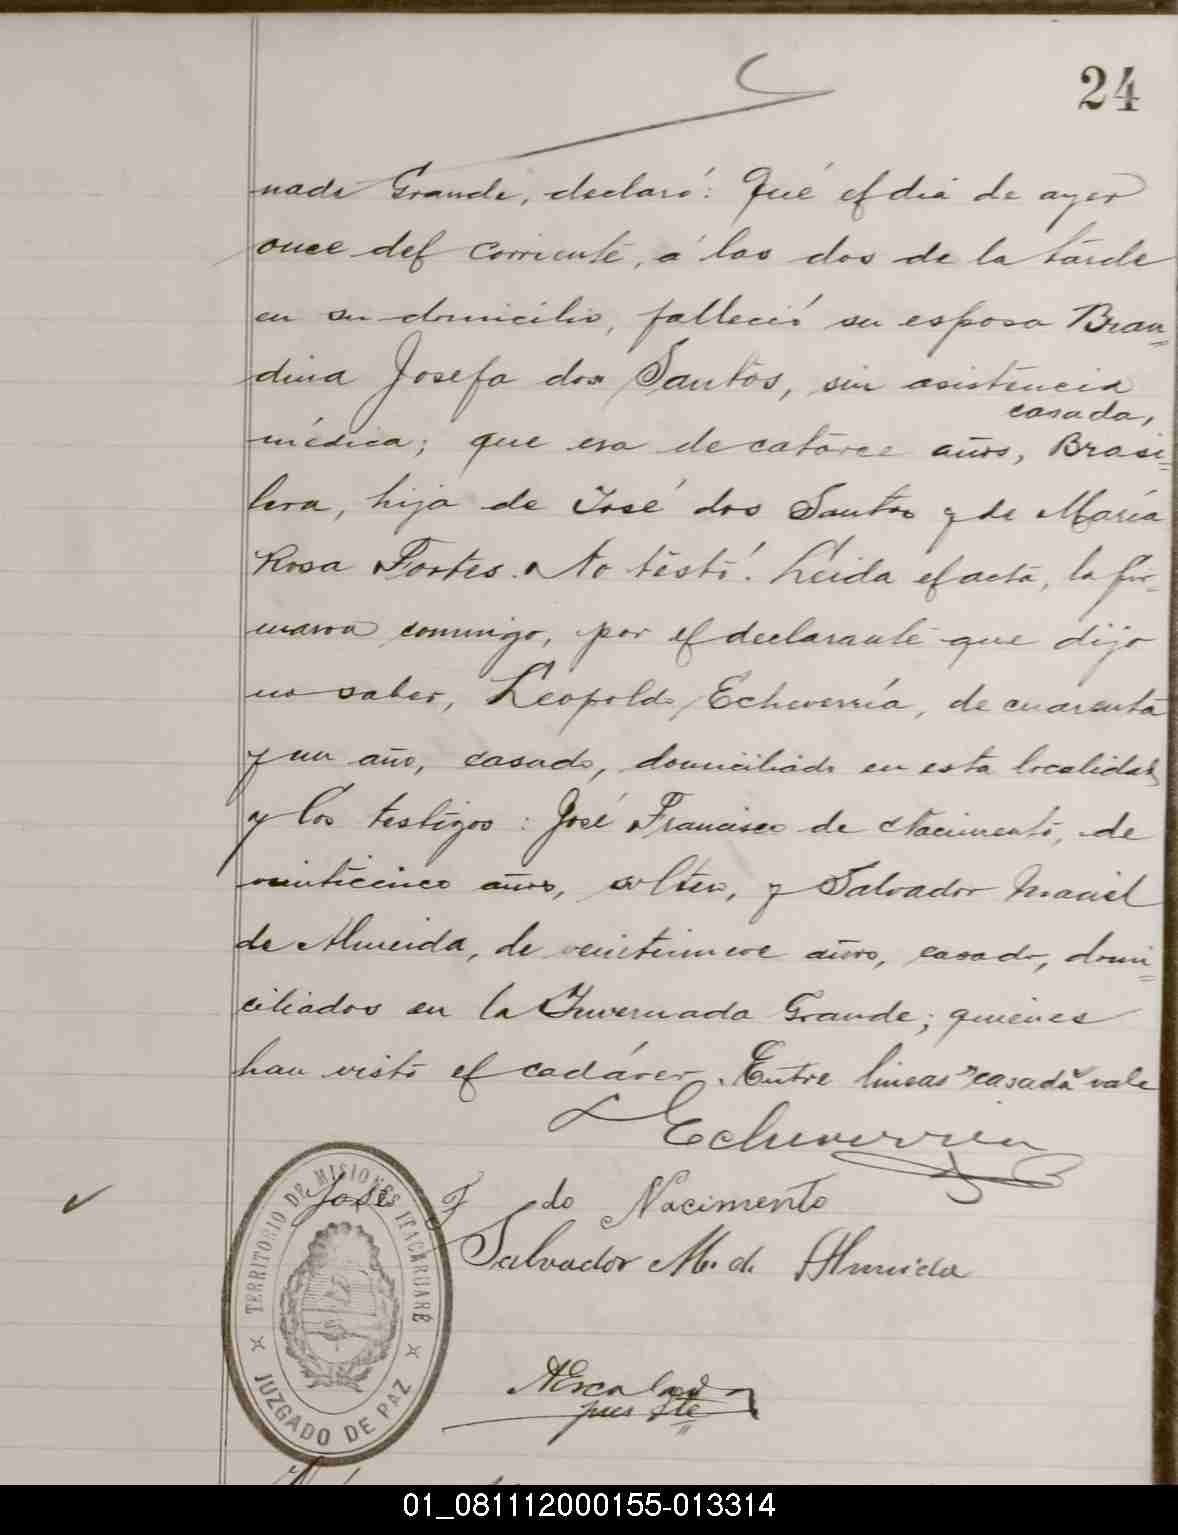 24
nada Grande, declaró: Qué el dia de ayer
once del corriente, á las dos de la tarde
en su domicilio, falleció su esposa Bran=
dina Josefa dos Santos, sin asistencia
casada,
médica; que era de catorce años, Brasi=
lera, hija de José dos Santos y de María
Rosa Fortes. No testó. Leida el acta, la fir=
maron conmigo, por el declarante que dijo
no saber, Leopoldo Echeverría, de cuarenta
y un año, casado, domiciliado en esta localidad
y los testigos: José Francisco de Nacimento, de
veinticinco años, soltero, y Salvador Maciel
de Almeida, de veintinueve años, casado, domi=
ciliados en la Invernada Grande; quienes
han visto el cadáver. Entre lineas "casada" vale
L Echeverria
José F do Nacimento
Salvador M. d. Almeida
TERRITORIO DE MISIONES ITACARUARÉ
JUZGADO DE PAZ
AEscalada
juez Ste
01_081112000155-013314